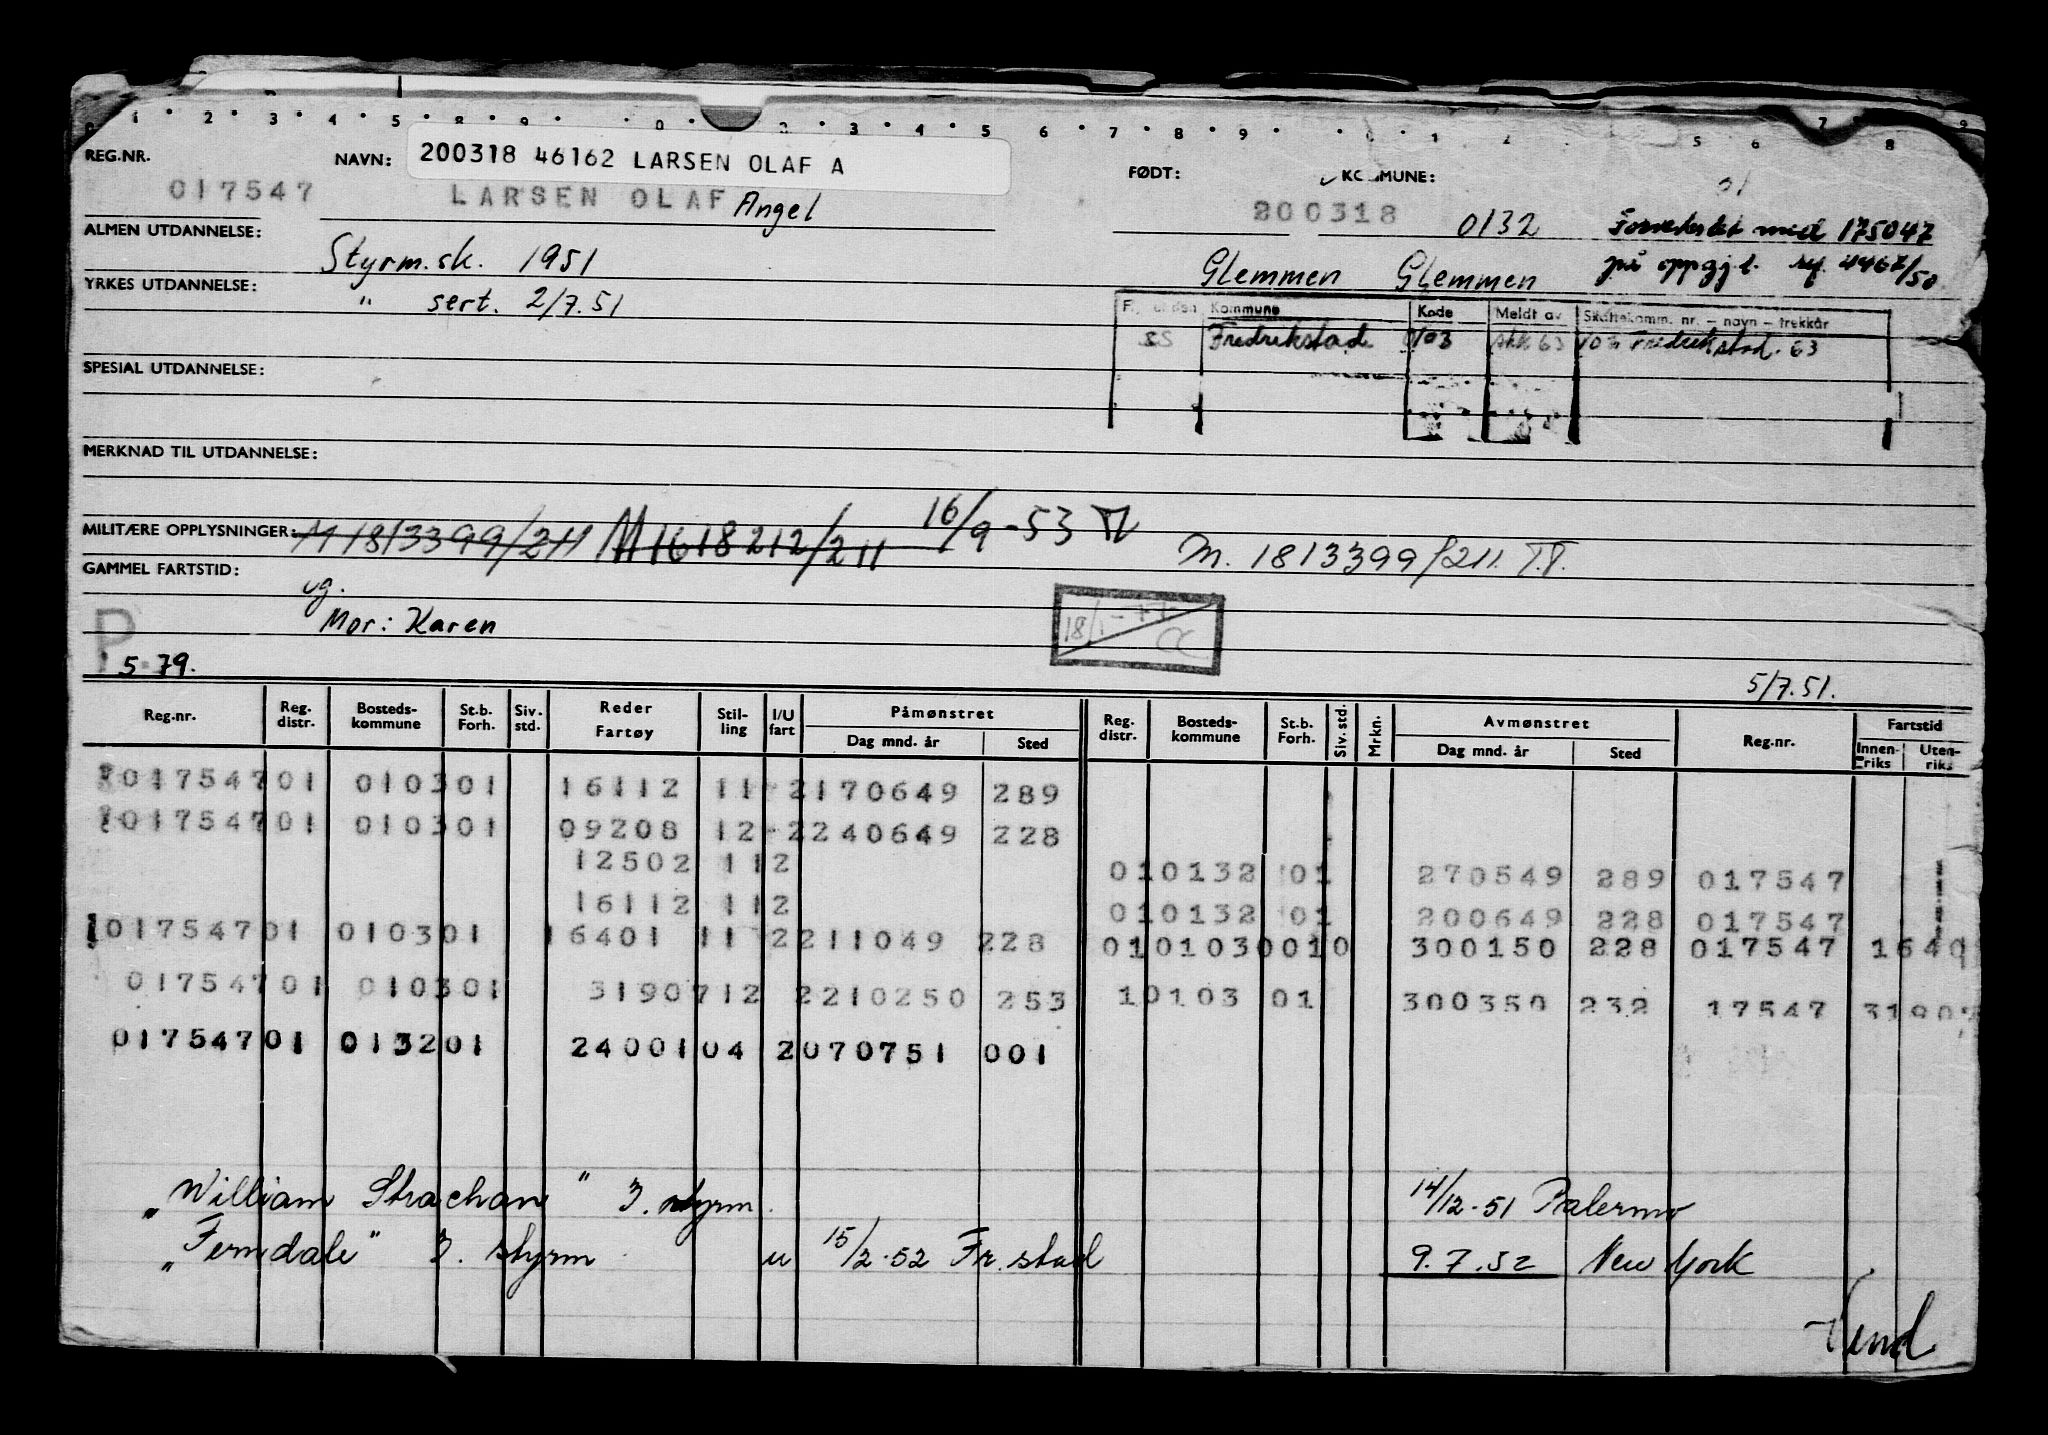 1 2 3 4 5 8 9 0 3 4 5 6 7 8 9 1 2 5 6 7 8 9
REG.NR. NAVN: 200318 46162 LARSEN OLAF A FØDT: KOMMUNE:
017547 LARSEN OLAF Angel 200318 0132 Forvekslet med 175047
ALMEN UTDANNELSE: Styrm.sk. 1951 Glemmen Glemmen på oppgj.l. 4467/50
YRKES UTDANNELSE: " sert. 2/7.51
Kommune Kode Meldt av Skattekomm. nr. – navn – trekkår
Fredrikstad 0103 63 103 Fredrikstad. 63
SPESIAL UTDANNELSE:
MERKNAD TIL UTDANNELSE:
MILITÆRE OPPLYSNINGER: M 1813399/211 M 1618212/211 16/9-53 M. 1813399/211. T.T.
GAMMEL FARTSTID: ug.
Mor: Karen 18/1-77
P
5.79. 5/7.51.
Reg.nr. Reg. distr. Bosteds-kommune St.b. Forh. Siv. std. Reder Fartøy Stil-ling I/U fart Påmønstret Dag mnd. år Sted Reg. distr. Bosteds-kommune St.b. Forh. Siv. std. Mrkn. Avmønstret Dag mnd. år Sted Reg.nr. Fartstid Innen-riks Uten-riks
017547 01 0103 01 16112 11 2 170649 289
017547 01 0103 01 09208 12 2 240649 228
12502 11 2 01 0132 01 270549 289 017547
16112 11 2 01 0132 01 200649 228 017547
017547 01 0103 01 16401 11 2 211049 228 01 0103 0010 300150 228 017547 1640
017547 01 0103 01 31907 12 2 210250 253 1 0103 01 300350 232 17547 31907
017547 01 0132 01 24001 04 2 070751 001
"William Strachan" 3. styrm. 14/12-51 Palermo
"Ferndale" 3. styrm u 15/2-52 Fr.stad 9.7.52 New York
Vend